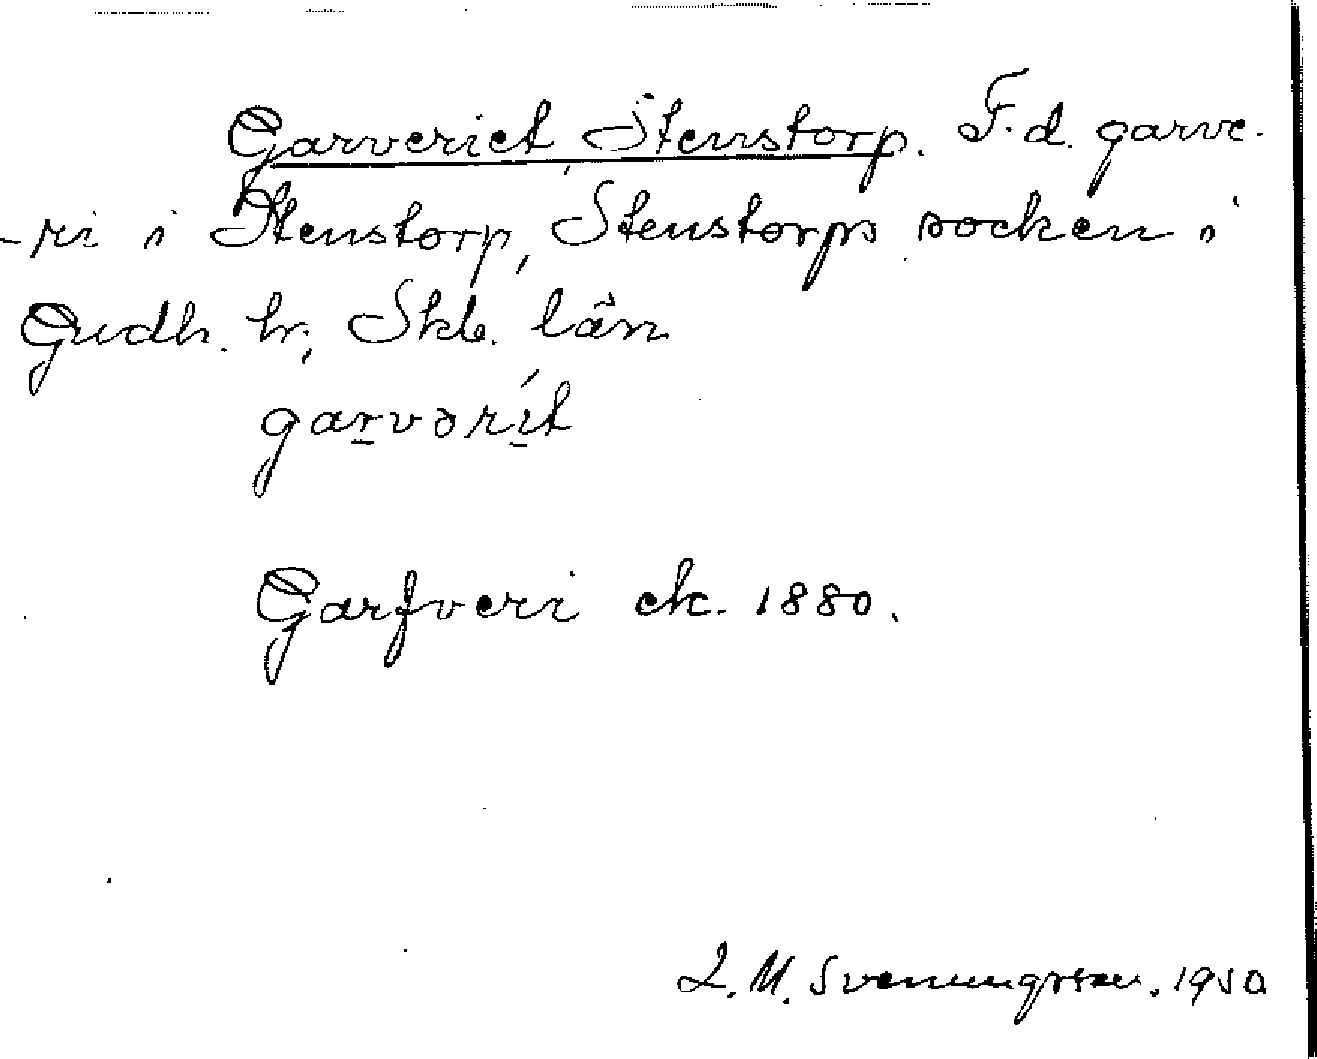 Garveriet, Stenstorp. F.d. garve-
-ri i Stenstorp, Stenstorps socken i
Gudh. hr, Skb. län
garvərít
Garfveri ek. 1880.
L. M. Svenungsson. 1950